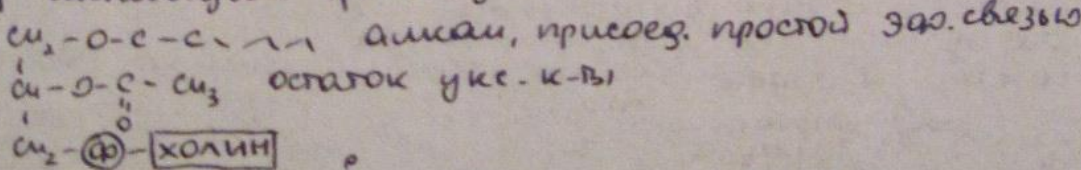 CH₂-O-C-C алкан, присоед. простой эфо. связью
CH-O-C-CH₃ остаток укс. к-ты
O
CH₂-Ф-ХОЛИН